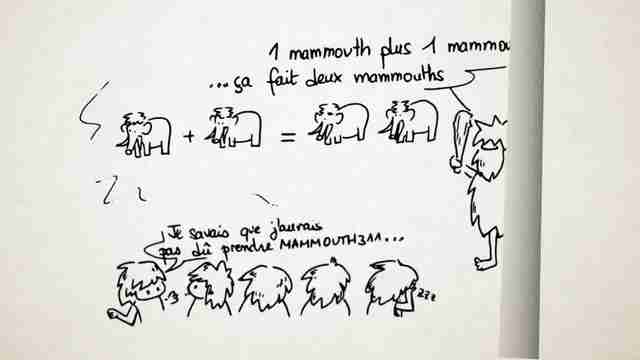 1 mammouth plus 1 mammou
...ça fait deux mammouths
+ =
Je savais que j'aurais
pas dû prendre MAMMOUTH311...
zzz